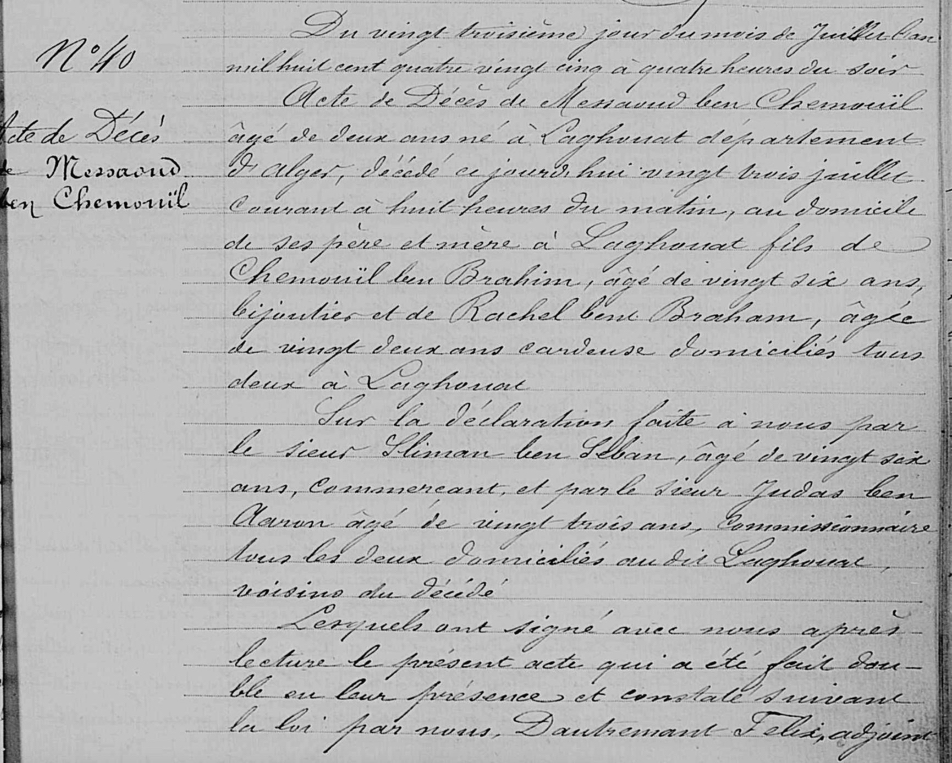 N° 40
Acte de Décès
de Messaoud
ben Chemouïl
Du vingt troisième jour du mois de Juillet l'an
mil huit cent quatre vingt cinq à quatre heures du soir
Acte de Décès de Messaoud ben Chemouïl
âgé de deux ans né à Laghouat département
d'Alger, décédé ce jourd'hui vingt trois juillet
courant à huit heures du matin, au domicile
de ses père et mère à Laghouat fils de
Chemouïl ben Brahim, âgé de vingt six ans,
bijoutier et de Rachel bent Braham, âgée
de vingt deux ans cardeuse domiciliés tous
deux à Laghouat
Sur la déclaration faite à nous par
le sieur Sliman ben Seban, âgé de vingt six
ans, commerçant, et par le sieur Judas ben
Aaron âgé de vingt trois ans, commissionnaire
tous les deux domiciliés au dit Laghouat,
voisins du décédé
Lesquels ont signé avec nous après
lecture le présent acte qui a été fait dou-
ble en leur présence et constaté suivant
la loi par nous, Dautremant Félix, adjoint